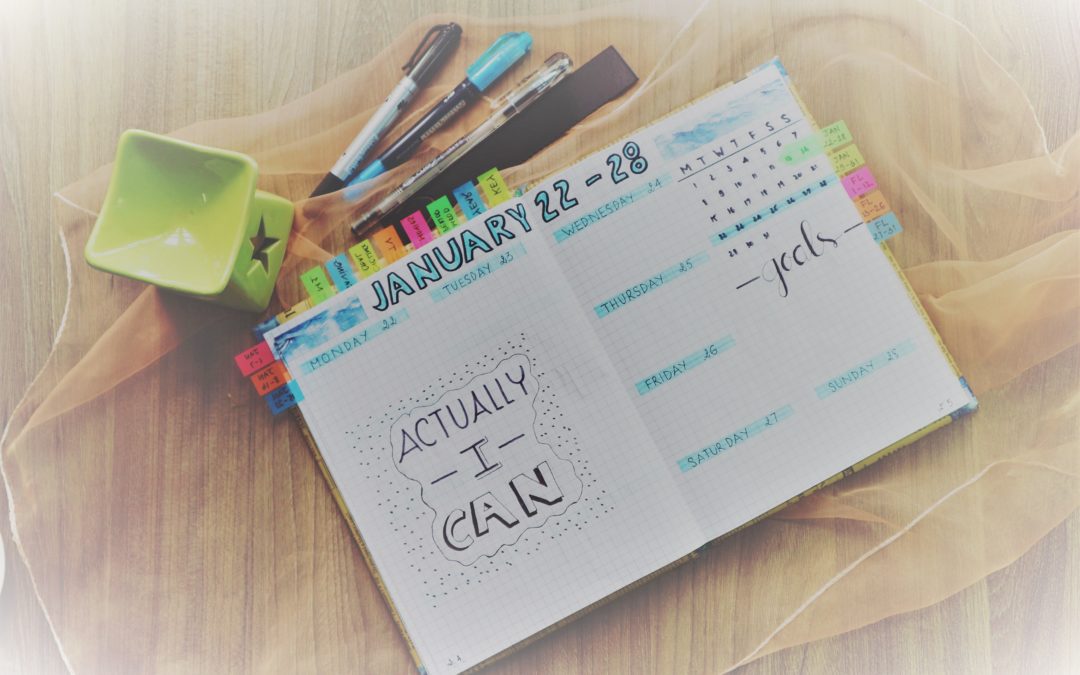 KEY
JANUARY 22 - 28
MONDAY 22
TUESDAY 23
ACTUALLY
- I -
CAN
24
WEDNESDAY 24
THURSDAY 25
FRIDAY 26
SATURDAY 27
SUNDAY
M T W T F S S
1 2 3 4 5 6 7
8 9 10 11 12 13 14
15 16 17 18 19 20 21
22 23 24 25 26 27 28
29 30 31
- goals -
25
JAN
22-28
JAN
FL
1-12
FL
13-26
FL
27-31